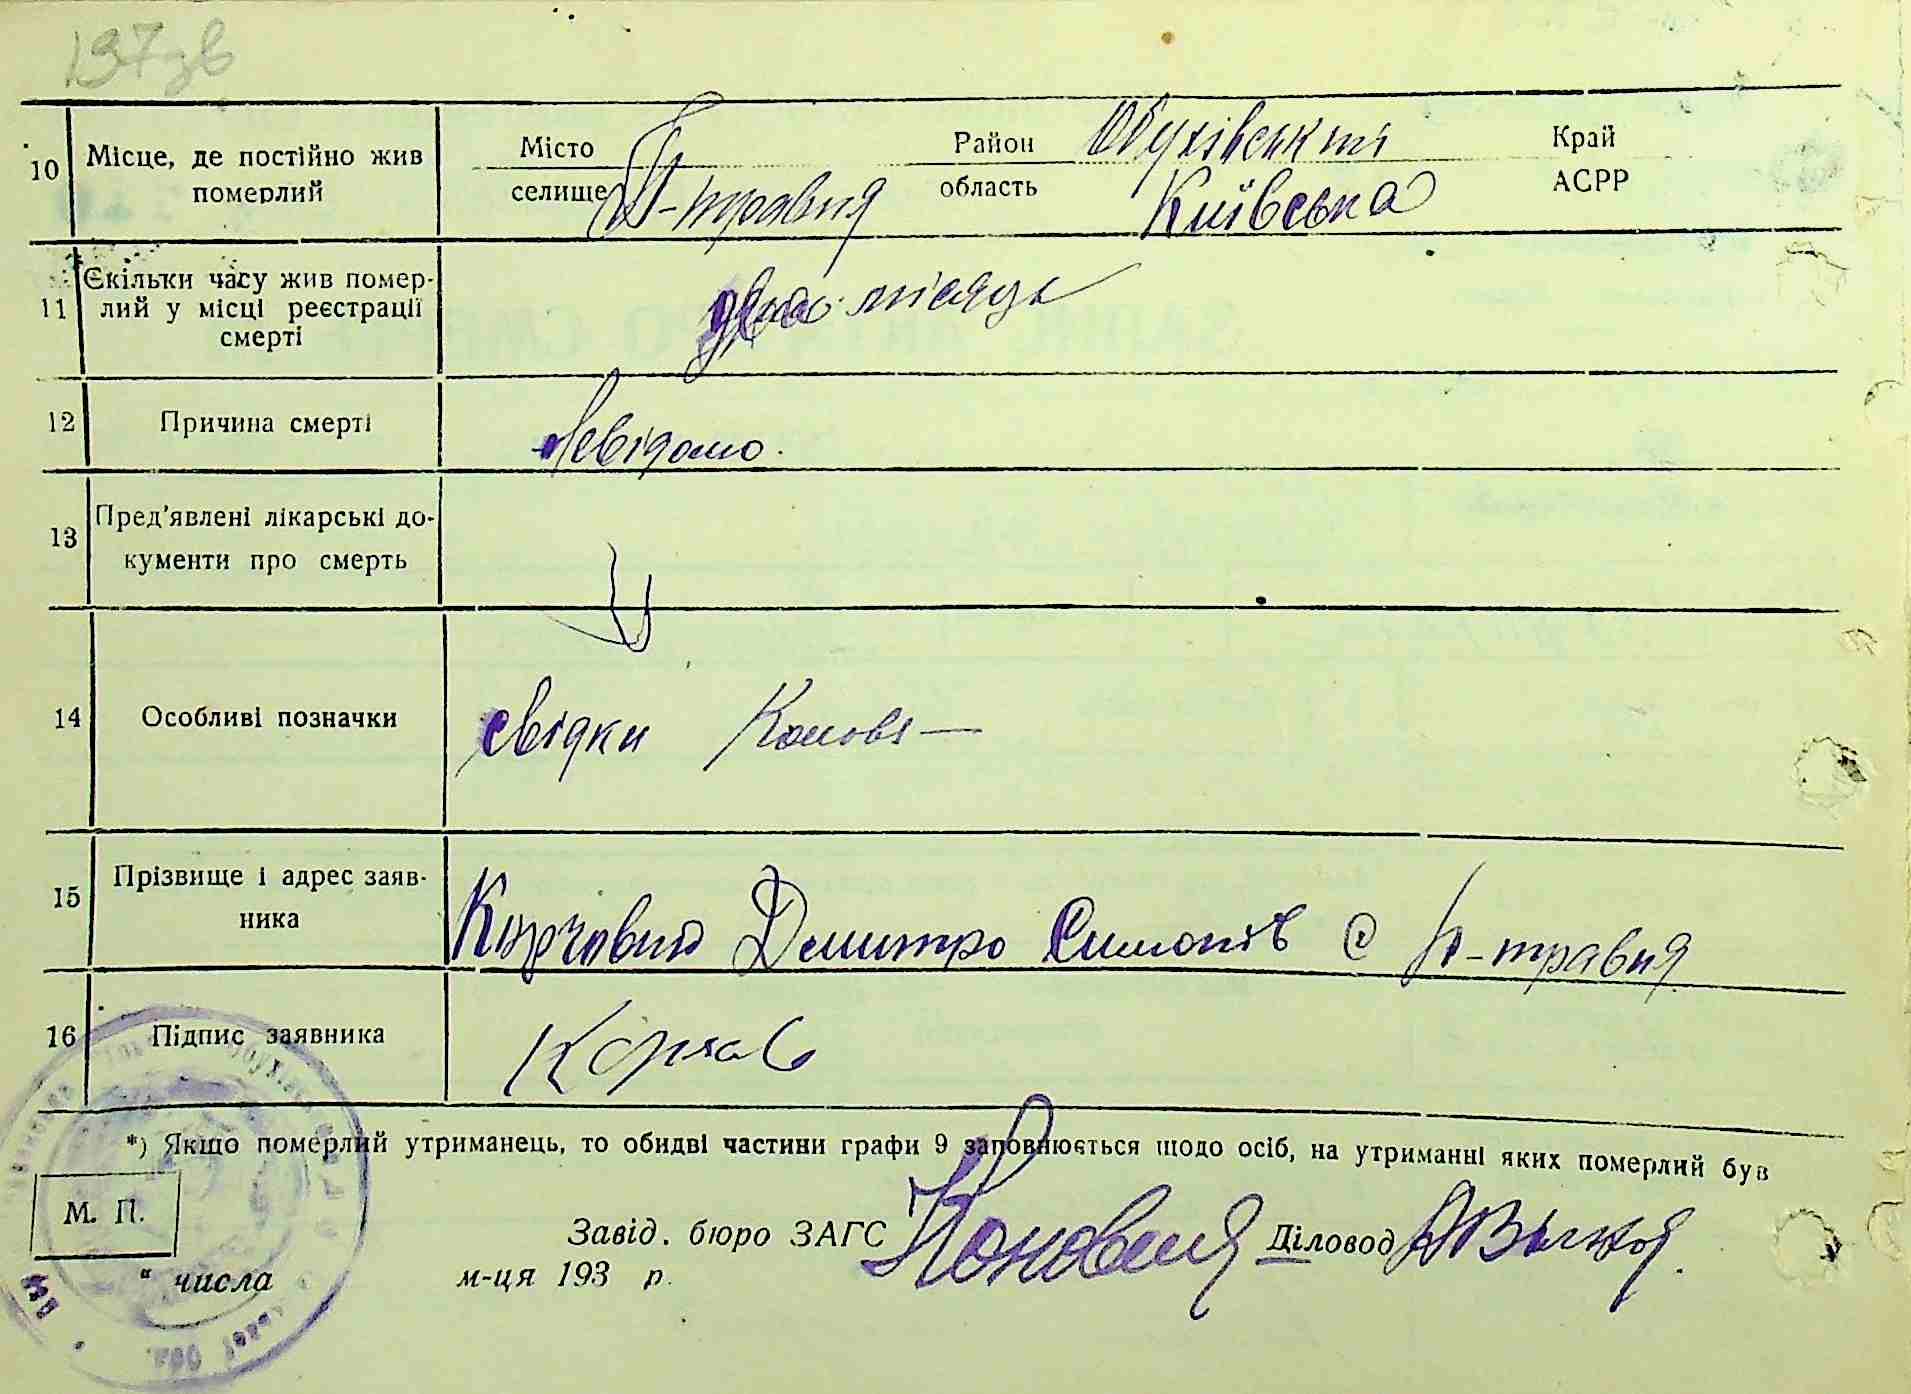 197 зв
10 Місце, де постійно жив померлий Місто Район Обухівський Край
селище П-травня область Київська АСРР
11 Скільки часу жив помер-
лий у місці реєстрації
смерті
два місяця
12 Причина смерті Невідомо.
13 Пред'явлені лікарські до-
кументи про смерть
14 Особливі позначки свідки
15 Прізвище і адрес заяв-
ника
Корчовий Дмитро Симонів с П-травня
16 Підпис заявника
*) Якщо померлий утриманець, то обидві частини графи 9 заповнюється щодо осіб, на утриманні яких померлий був
М. П.
Завід. бюро ЗАГС Діловод
" числа м-ця 193 р.